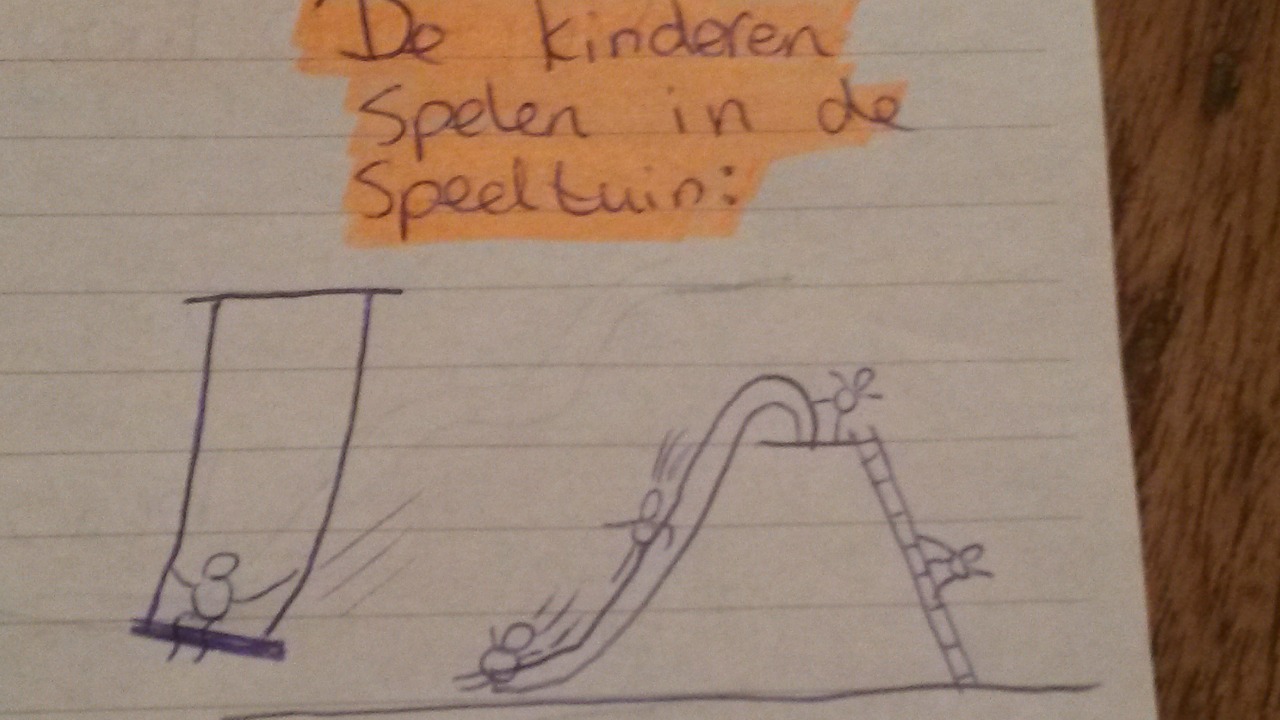 De kinderen
Spelen in de
Speeltuin: